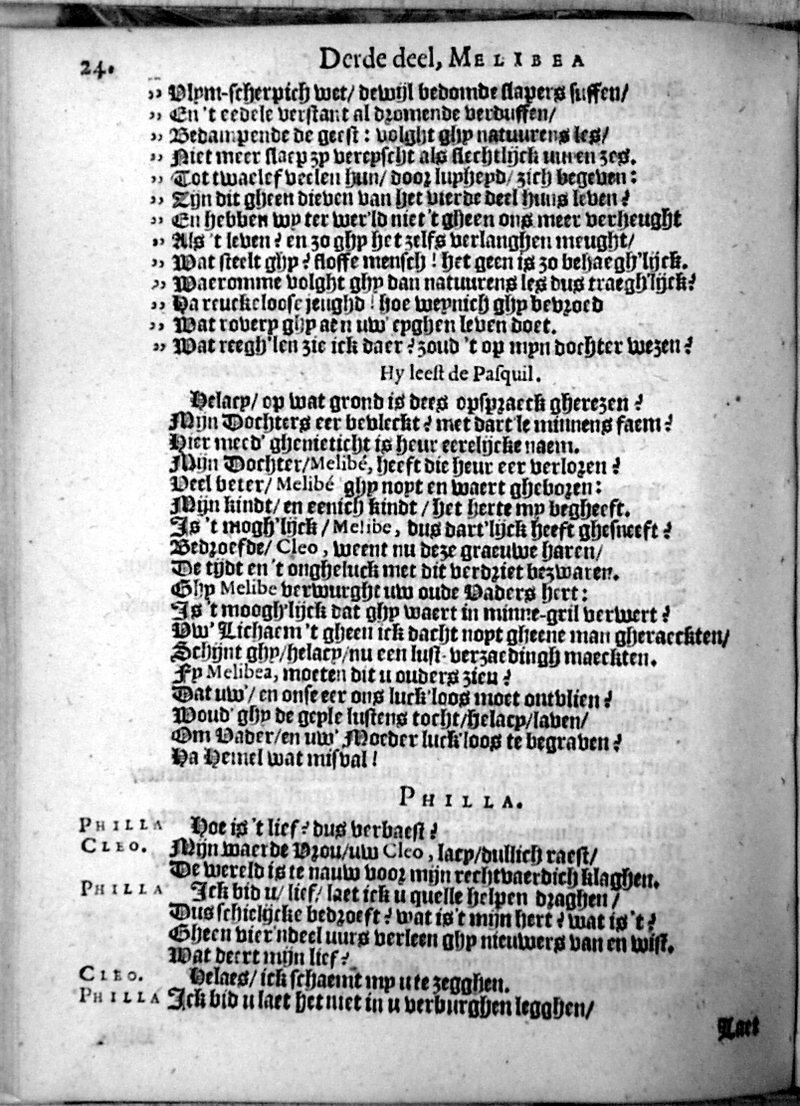 24.
Derde deel, MELIBEA
„ Vlym-scherpich wet/ dewijl bedomde slapers suffen/
„ En 't eedele verstant al dromende verduffen/
„ Bedampende de geest: volght ghy natuurens les/
„ Niet meer slaep zy vereyscht als slechtlijck uuren zes.
„ Tot twaelef veelen hun/ door luyheyd/ zich begeven:
„ Zijn dit gheen dieven van het vierde deel huns leven?
„ En hebben wy ter wer'ld niet 't gheen ons meer verheught
„ Als 't leven? en zo ghy het zelfs verlanghen meught/
„ Wat steelt ghy? sloffe mensch! het geen is zo behaegh'lijck.
„ Waeromme volght ghy dan natuurens les dus traegh'lijck?
„ Ha reuckeloose jeughd! hoe weynich ghy bevroed
„ Wat rovery ghy aen uw' eyghen leven doet.
„ Wat reegh'len zie ick daer? zoud 't op myn dochter wezen?
Hy leest de Pasquil.
Helaey/ op wat grond is dees opspraeck gherezen?
Mijn Dochters eer bevleckt? met dart'le minnens faem?
Hier meed' ghenieticht is heur eerelijcke naem.
Mijn Dochter/ Melibé, heeft die heur eer verloren?
Veel beter/ Melibé ghy noyt en waert gheboren:
Mijn kindt/ en eenich kindt/ het herte my begheeft.
Is 't mogh'lijck/ Melibe, dus dart'lijck heeft ghesneeft?
Bedroefde/ Cleo, weent nu deze graeuwe haren/
De tijdt en 't ongheluck met dit verdriet bezwaren.
Ghy Melibe verwurght uw oude Vaders hert:
Is 't moogh'lijck dat ghy waert in minne-gril verwert?
Uw' Lichaem 't gheen ick dacht noyt gheene man gheraeckten/
Schijnt ghy/ helaey/ nu een lust-verzaedingh maeckten.
Fy Melibea, moeten dit u ouders zien?
Dat uw'/ en onse eer ons luck'loos moet ontvlien?
Woud' ghy de geyle lustens tocht/ helaey/ laven/
Om Vader/ en uw' Moeder luck'loos te begraven?
Ha Hemel wat misval!
PHILLA.
PHILLA Hoe is 't lief? dus verbaest?
CLEO. Mijn waerde Vrou/ uw Cleo, laey/ dullich raest/
De wereld is te nauw voor mijn rechtvaerdich klaghen.
PHILLA Ick bid u/ lief/ laet ick u quelle helpen draghen/
Dus schielijcke bedroeft? wat is't mijn hert? wat is't?
Gheen vier'ndeel uurs verleen ghy nieuwers van en wist.
Wat deert mijn lief?
CLEO. Helaes/ ick schaemt my u te zegghen.
PHILLA Ick bid u laet het niet in u verburghen legghen/
Laet